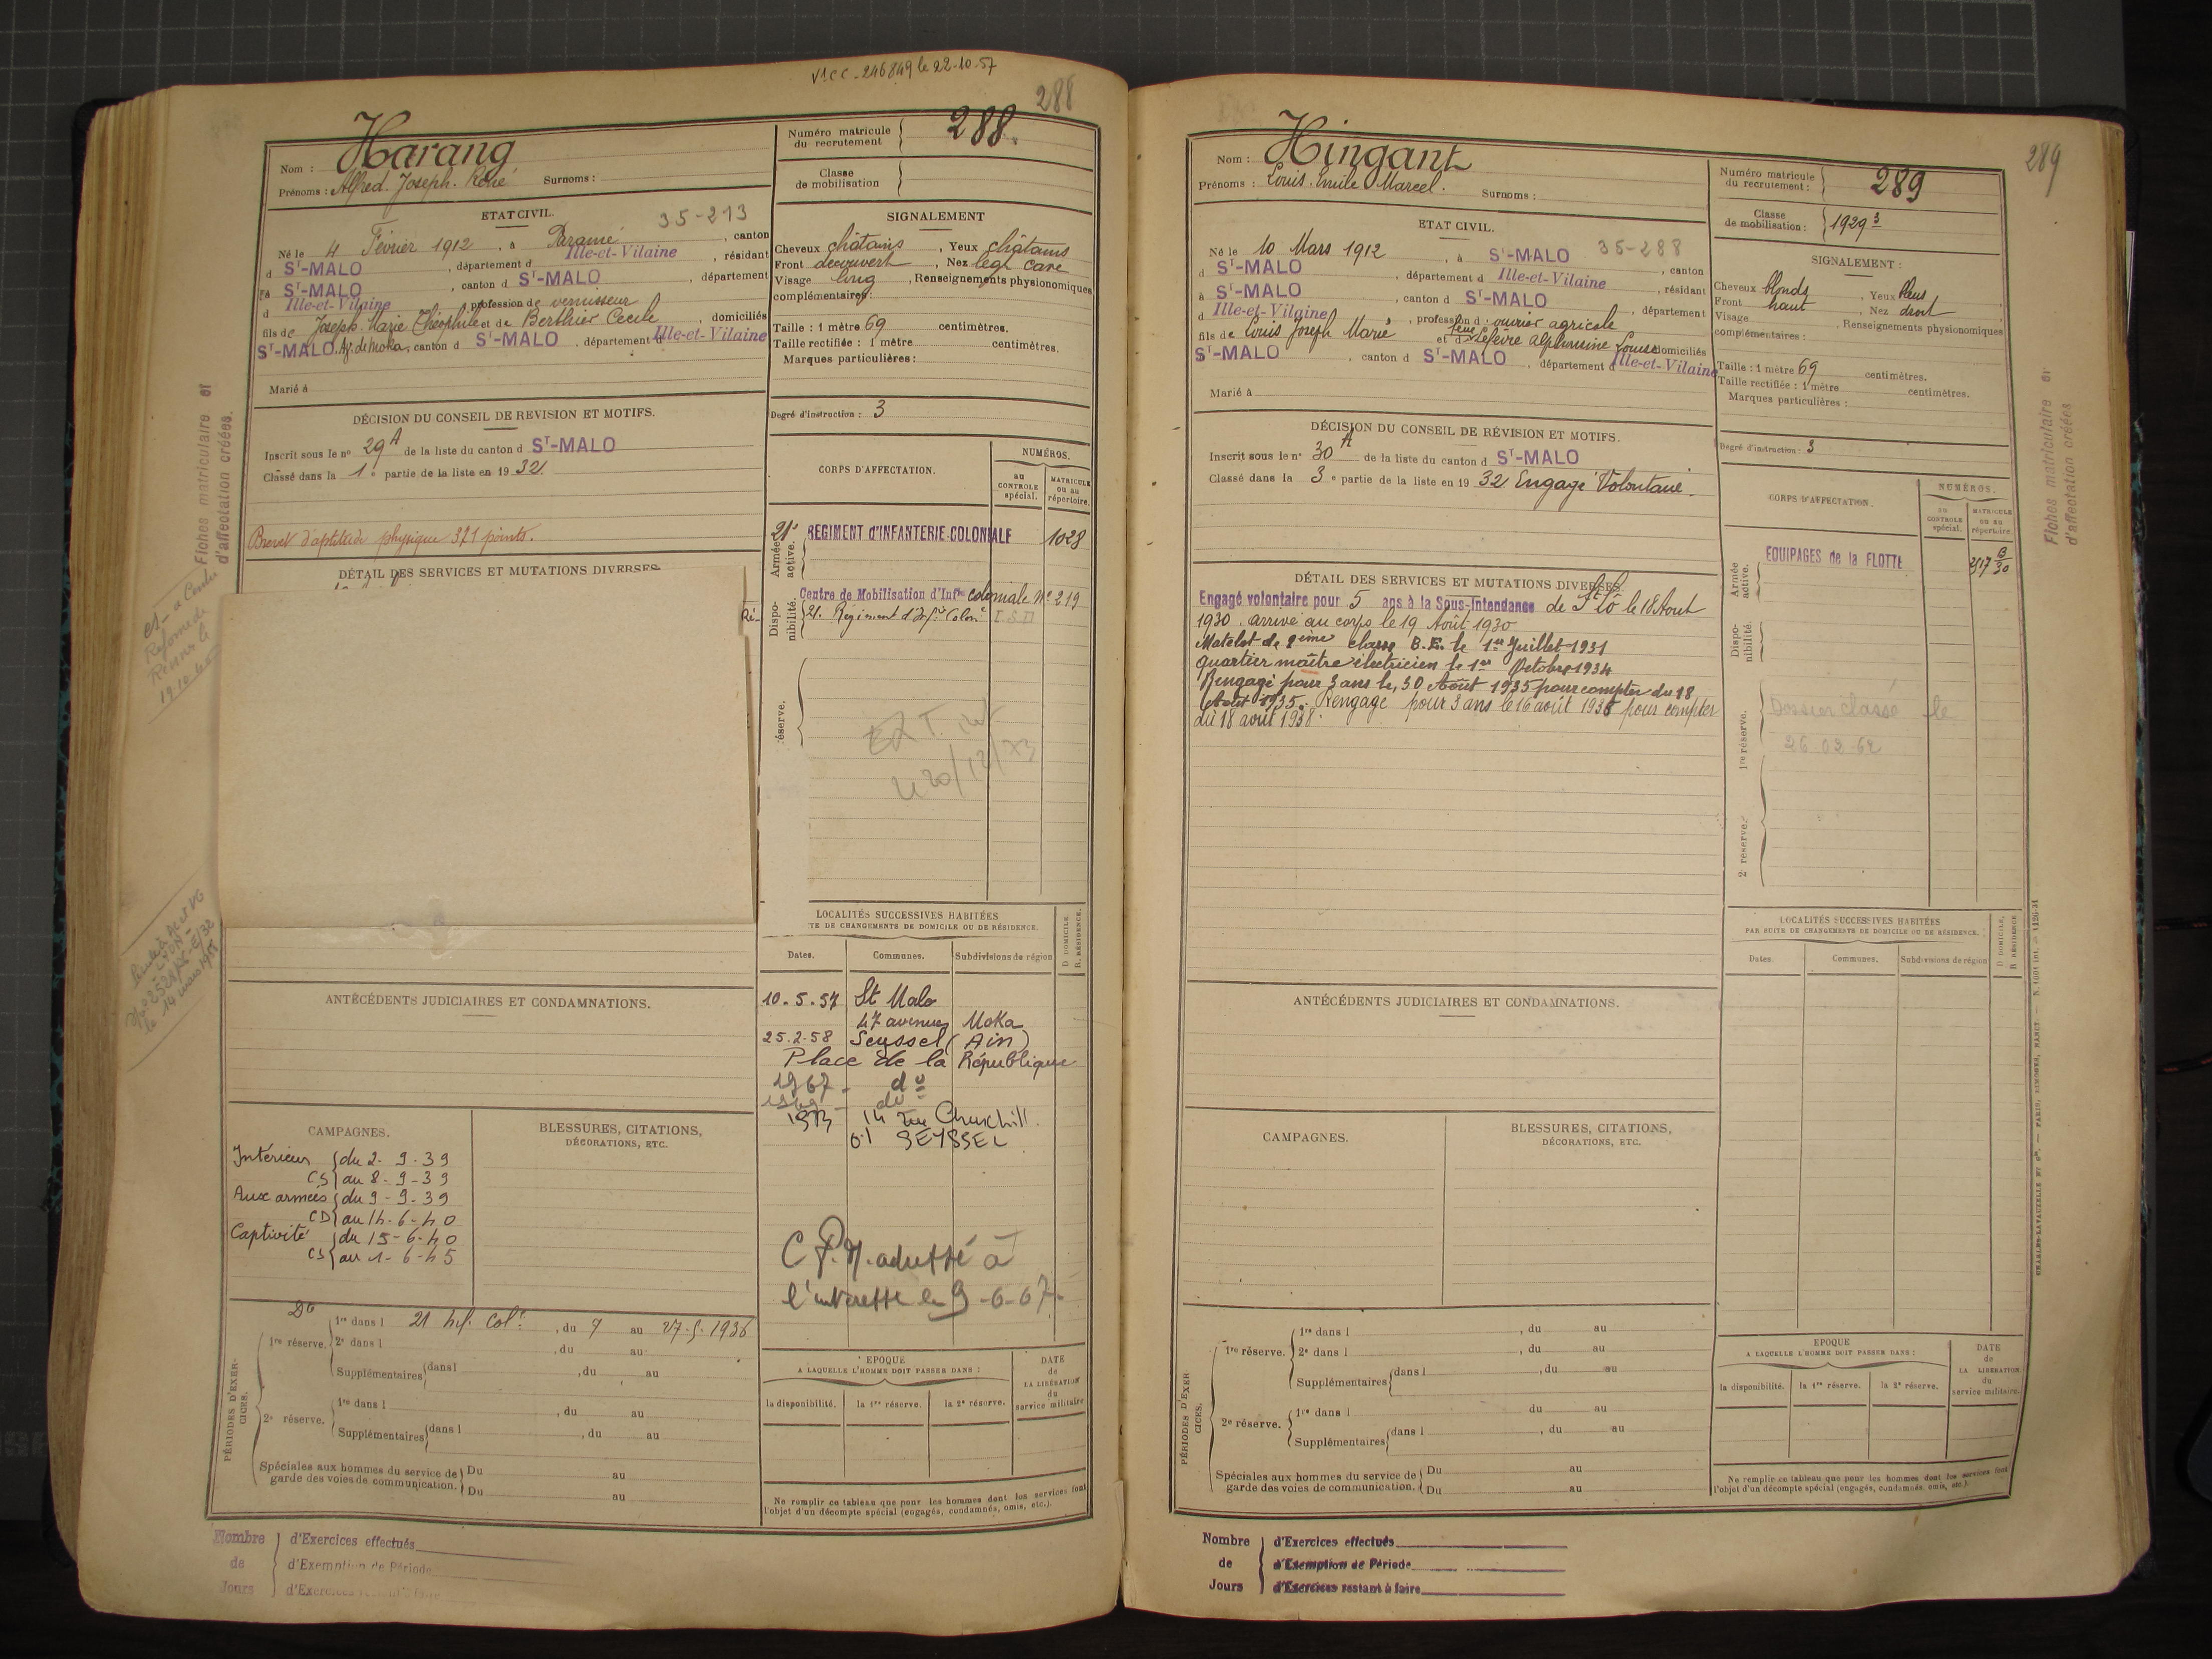 V1CC-246849 le 22-10-57
288
Nom : Harang
Prénoms : Alfred. Joseph. René Surnoms :
Numéro matricule du recrutement 288.
Classe de mobilisation
ETAT CIVIL. 35-213
Né le 4 Février 1912, à Paramé, canton
d ST-MALO, département d Ille-et-Vilaine, résidant
à ST-MALO, canton d ST-MALO, département
d Ille-et-Vilaine, profession de vernisseur
fils de Joseph Marie Théophile et de Berthier Cecile, domiciliés
ST-MALO, Av. de Moka, canton d ST-MALO, département d Ille-et-Vilaine
Marié à
SIGNALEMENT
Cheveux châtains, Yeux châtains
Front decouvert, Nez leg. cave
Visage long, Renseignements physionomiques
complémentaires :
Taille : 1 mètre 69 centimètres.
Taille rectifiée : 1 mètre centimètres.
Marques particulières :
Degré d'instruction : 3
DÉCISION DU CONSEIL DE REVISION ET MOTIFS.
Inscrit sous le n° 29 A de la liste du canton d ST-MALO
Classé dans la 1e partie de la liste en 1932.
Brevet d'aptitude physique 371 points.
DÉTAIL DES SERVICES ET MUTATIONS DIVERSES
CORPS D'AFFECTATION.
NUMÉROS.
au CONTROLE spécial.
MATRICULE ou au répertoire.
Armée active.
21e REGIMENT d'INFANTERIE COLONIALE 1028
Disponibilité.
Centre de Mobilisation d'Infie coloniale No 219
21. Régiment d'Infie Colon
Ré-
éserve.
20/12/73
Fiches matriculaire et
d'affectation créées.
LOCALITÉS SUCCESSIVES HABITÉES
TE DE CHANGEMENTS DE DOMICILE OU DE RÉSIDENCE.
D. DOMICILE.
R. RÉSIDENCE.
Dates. Communes. Subdivisions de région
10.5.57 St Malo
47 avenue Moka
25.2.58 Seyssel (Ain)
Place de la République
1967 - do
do
1973 14 rue Churchill.
01 SEYSSEL
ANTÉCÉDENTS JUDICIAIRES ET CONDAMNATIONS.
CAMPAGNES.
BLESSURES, CITATIONS,
DÉCORATIONS, ETC.
Intérieur du 2-9-39
CS au 8-9-39
Aux armées du 9-9-39
CD au 14-6-40
Captivité du 15-6-40
CS au 1-6-45
adressé à
l'intéressé le 9-6-67-
PÉRIODES D'EXERCICES.
1re réserve. 1re dans l 21 Inf. Colle, du 7 au 27.5.1936
2e dans l, du au
Supplémentaires dans l, du au
2e réserve. 1re dans l, du au
Supplémentaires dans l, du au
Spéciales aux hommes du service de garde des voies de communication. Du au
Du au
EPOQUE
A LAQUELLE L'HOMME DOIT PASSER DANS :
la disponibilité. la 1re réserve. la 2e réserve.
DATE de LA LIBÉRATION du service militaire
Ne remplir ce tableau que pour les hommes dont les services font
l'objet d'un décompte spécial (engagés, condamnés, omis, etc.).
Nombre de Jours
d'Exercices effectués
d'Exemption de Période
289
Nom : Hingant
Prénoms : Louis. Emile Marcel. Surnoms :
Numéro matricule du recrutement : 289
Classe de mobilisation : 1929 3
ETAT CIVIL.
Né le 10 Mars 1912, à ST-MALO 35-288
d ST-MALO, département d Ille-et-Vilaine, canton
à ST-MALO, canton d ST-MALO, résidant
d Ille-et-Vilaine, profession d ouvrier agricole, département
fils de Louis Joseph Marie et de feue Lefèvre Alphonsine Louise domiciliés
ST-MALO, canton d ST-MALO, département d Ille-et-Vilaine
Marié à
SIGNALEMENT :
Cheveux blonds, Yeux bleus
Front haut, Nez droit
Visage, Renseignements physionomiques
complémentaires :
Taille : 1 mètre 69 centimètres.
Taille rectifiée : 1 mètre centimètres.
Marques particulières :
Degré d'instruction : 3
DÉCISION DU CONSEIL DE RÉVISION ET MOTIFS.
Inscrit sous le n° 30 A de la liste du canton d ST-MALO
Classé dans la 3e partie de la liste en 1932 Engagé Volontaire.
DÉTAIL DES SERVICES ET MUTATIONS DIVERSES
Engagé volontaire pour 5 ans à la Sous-Intendance de St Lô le 18 Aout
1930. arrivé au corps le 19 Août 1930
Matelot de 2ème classe B.E. le 1er Juillet 1931
quartier maître électricien le 1er Octobre 1934
Rengagé pour 3 ans le 30 Août 1935 pour compter du 18
Août 1935. Rengagé pour 3 ans le 16 août 1938 pour compter
du 18 août 1938.
CORPS D'AFFECTATION.
NUMÉROS.
au CONTROLE spécial.
MATRICULE ou au répertoire.
Armée active.
EQUIPAGES de la FLOTTE
Disponibilité.
1re réserve.
Dossier classé le
26.02.62
2e réserve.
Fiches matriculaire et
d'affectation créées
LOCALITÉS SUCCESSIVES HABITÉES
PAR SUITE DE CHANGEMENTS DE DOMICILE OU DE RÉSIDENCE.
D. DOMICILE.
R. RÉSIDENCE
Dates. Communes. Subdivisions de région
ANTÉCÉDENTS JUDICIAIRES ET CONDAMNATIONS.
CAMPAGNES.
BLESSURES, CITATIONS,
DÉCORATIONS, ETC.
PÉRIODES D'EXERCICES.
1re réserve. 1re dans l, du au
2e dans l, du au
Supplémentaires dans l, du au
2e réserve. 1re dans l du au
Supplémentaires dans l, du au
Spéciales aux hommes du service de garde des voies de communication. Du au
Du au
EPOQUE
A LAQUELLE L'HOMME DOIT PASSER DANS :
la disponibilité. la 1re réserve. la 2e réserve.
DATE de LA LIBÉRATION du service militaire.
Ne remplir ce tableau que pour les hommes dont les services font
l'objet d'un décompte spécial (engagés, condamnés, omis, etc.).
Nombre de Jours
d'Exercices effectués
d'Exemption de Période
d'Exercices restant à faire